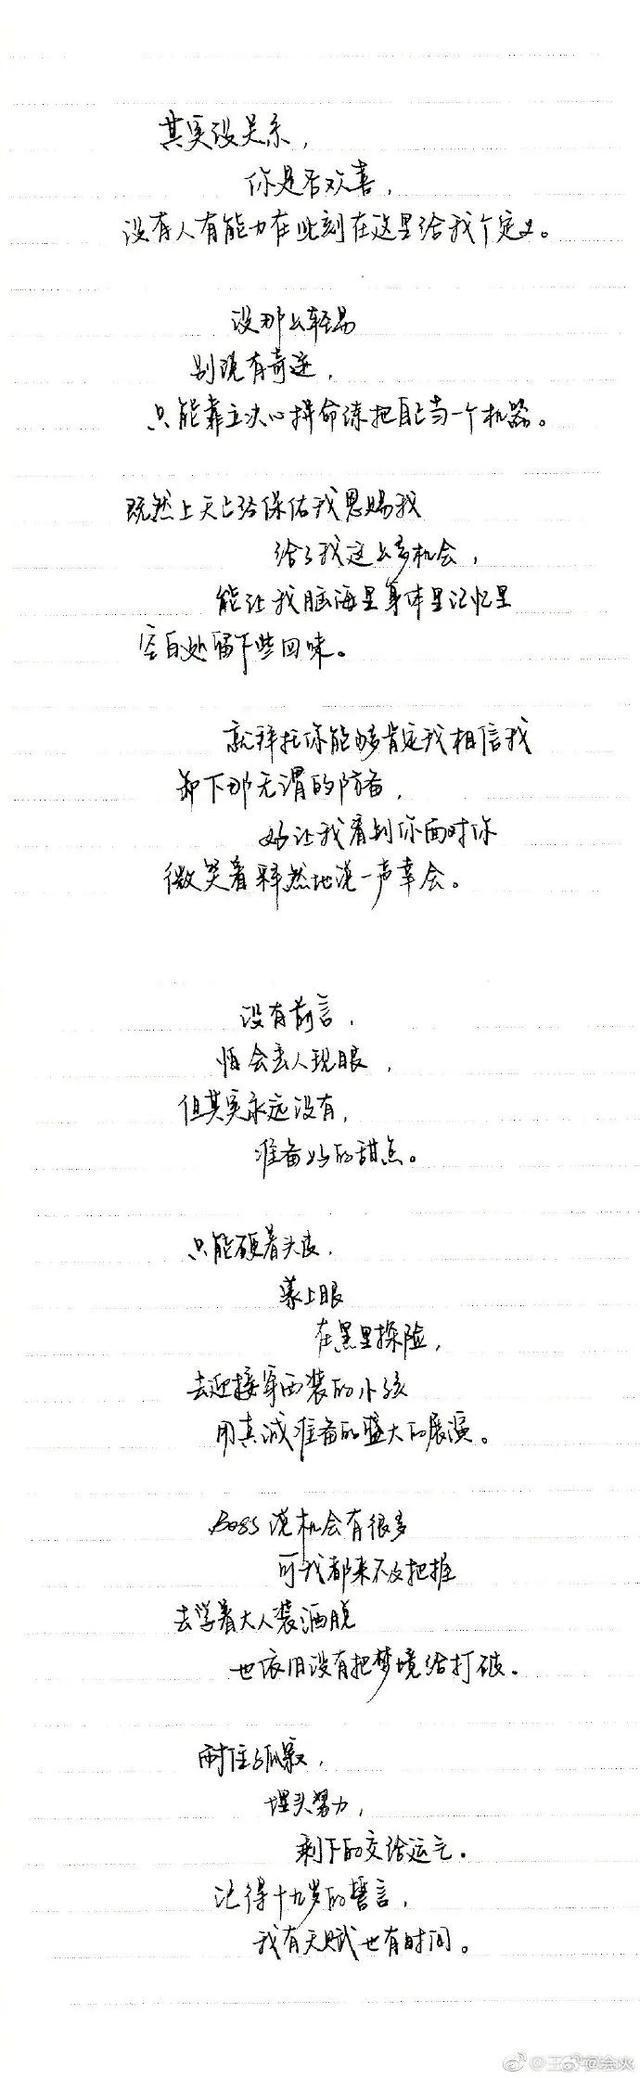 其实没关系，
你是否欢喜，
没有人有能力在此刻在这里给我个定义。
没那么轻易
别说有奇迹，
只能靠立决心拼命练把自己当一个机器。
既然上天已经保佑我恩赐我
给了我这么多机会，
能让我脑海里身体里记忆里
空白处留下些回味。
就拜托你能够肯定我相信我
卸下那无谓的防备，
好让我看到你面对你
微笑着释然地说一声幸会。
没有前言，
怕会丢人现眼，
但其实永远没有，
准备好的甜点。
只能硬着头皮，
蒙上眼
在黑里探险，
去迎接穿西装的小孩
用真诚准备的盛大的展演。
Boss说机会有很多
可我都来不及把握
去学着大人装洒脱
也依旧没有把梦境给打破。
耐住孤寂，
埋头努力，
剩下的交给运气。
记得十九岁的誓言，
我有天赋也有时间。